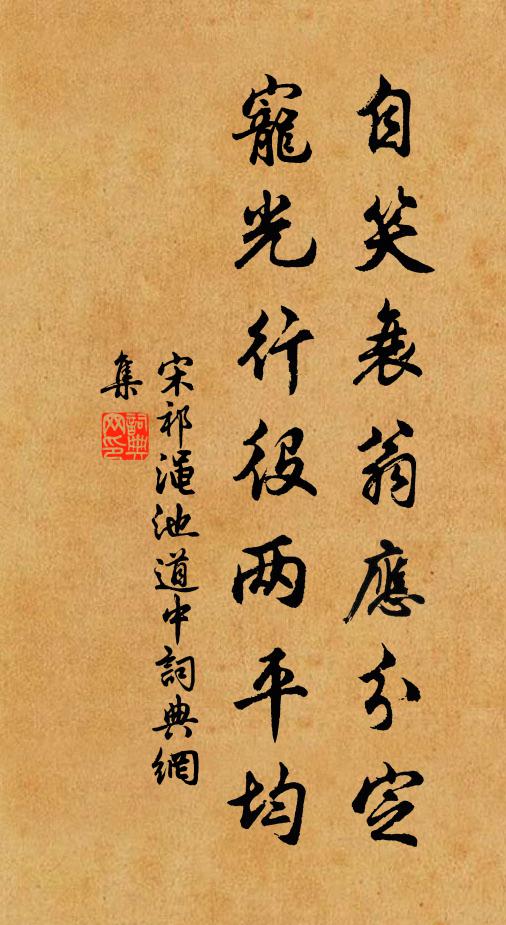 自笑衰翁應分定
寵光行役两平均
宋祁澠池道中詞典網
集
詞典
网印